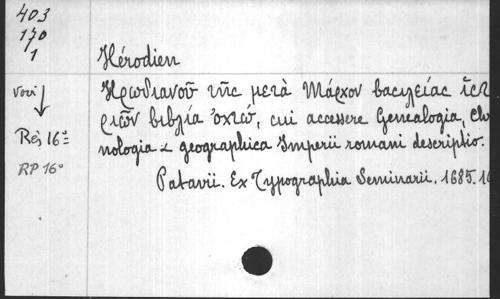 403
170
1
Hérodien
voir
Ἡρωδιανοῦ τῆς μετὰ Μάρκον βασιλείας ἱστ
Rés 16º
ριῶν βιβλία ὀκτώ, cui accessere Genealogia, Chr
nologia & geographica Imperii romani descriptio.
RP 16º
Patavii. Ex Typographia Seminarii. 1685. 16